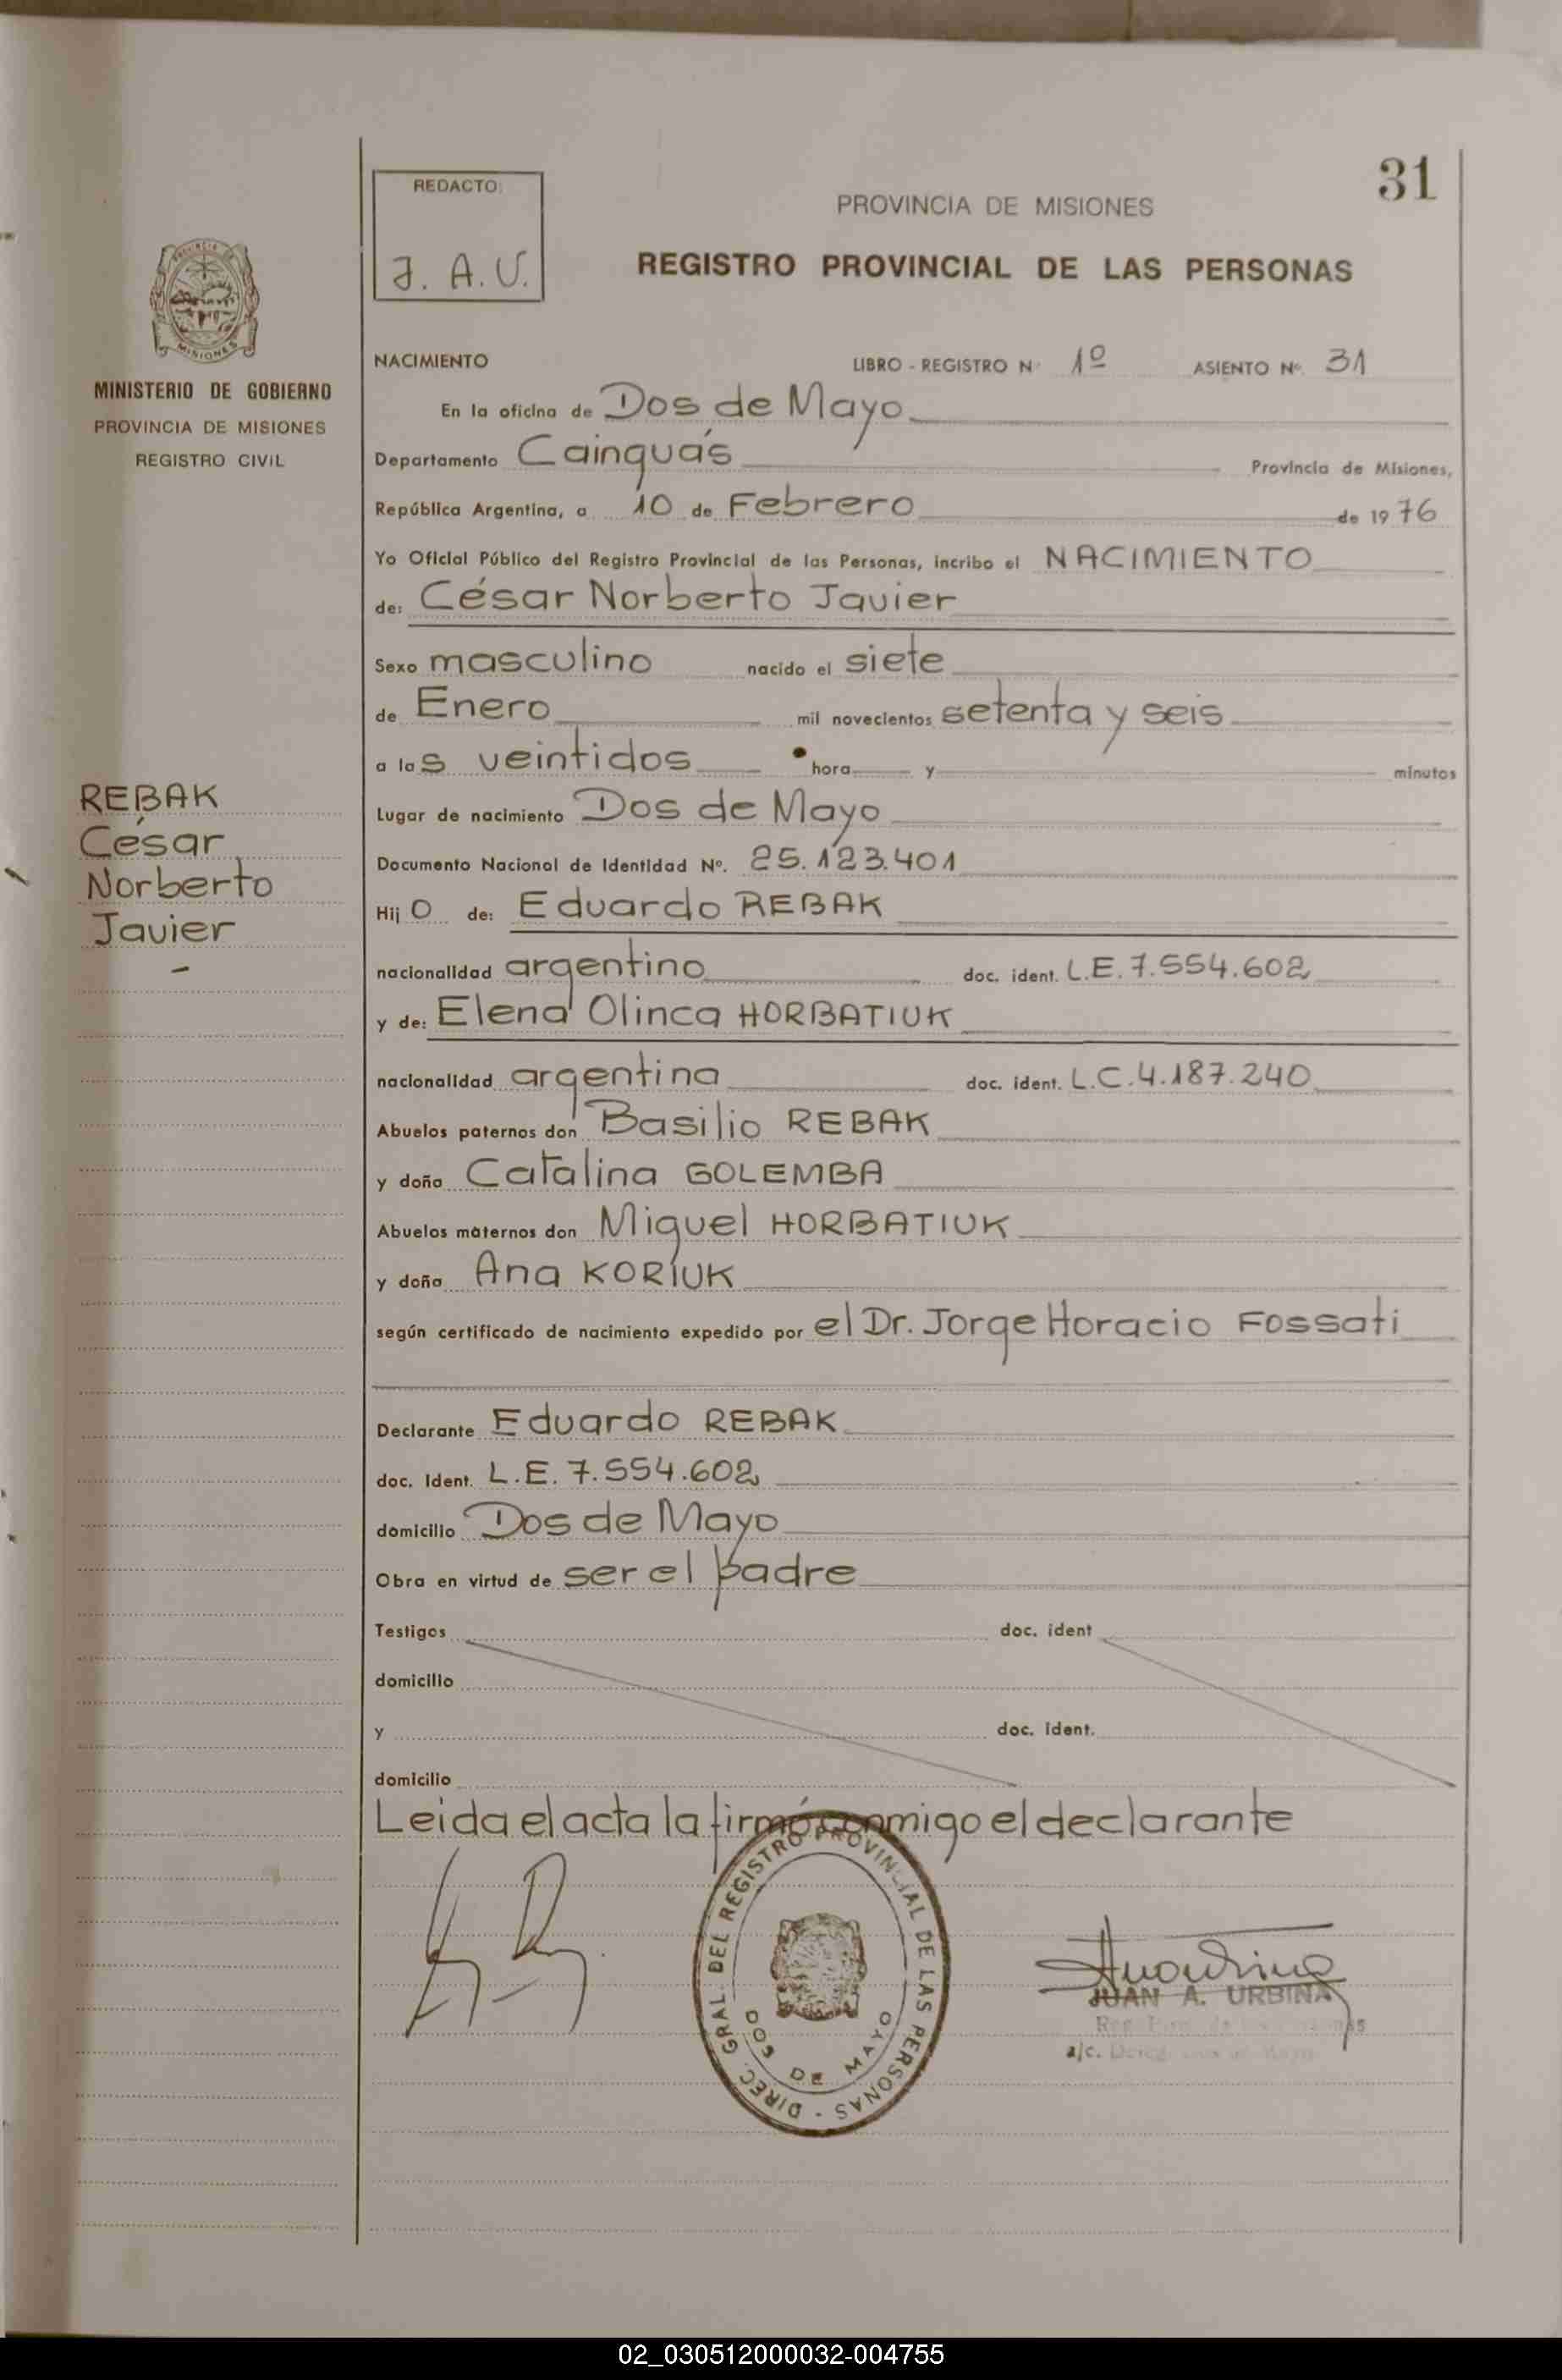 31
REDACTO:
J. A. U.
PROVINCIA DE MISIONES
REGISTRO PROVINCIAL DE LAS PERSONAS
PROVINCIA DE
MISIONES
MINISTERIO DE GOBIERNO
PROVINCIA DE MISIONES
REGISTRO CIVIL
REBAK
César
Norberto
Javier
-
NACIMIENTO LIBRO - REGISTRO Nº 1º ASIENTO Nº. 31
En la oficina de Dos de Mayo
Departamento Cainguás Provincia de Misiones,
República Argentina, a 10 de Febrero de 1976
Yo Oficial Público del Registro Provincial de las Personas, incribo el NACIMIENTO
de: César Norberto Javier
Sexo masculino nacido el siete
de Enero mil novecientos setenta y seis
a las veintidos hora y minutos
Lugar de nacimiento Dos de Mayo
Documento Nacional de Identidad Nº. 25.123.401
Hijo de: Eduardo REBAK
nacionalidad argentino doc. ident. L.E. 7.554.602
y de: Elena Olinca HORBATIUK
nacionalidad argentina doc. ident. L.C. 4.187.240
Abuelos paternos don Basilio REBAK
y doña Catalina GOLEMBA
Abuelos maternos don Miguel HORBATIUK
y doña Ana KORIUK
según certificado de nacimiento expedido por el Dr. Jorge Horacio Fossati
Declarante Eduardo REBAK
doc. Ident. L.E. 7.554.602
domicilio Dos de Mayo
Obra en virtud de ser el padre
Testigos doc. ident
domicilio
y doc. ident.
domicilio
Leida el acta la firmó conmigo el declarante
DIREC. GRAL. DEL REGISTRO PROVINCIAL DE LAS PERSONAS -
DOS DE MAYO
JUAN A. URBINA
a/c.
02_030512000032-004755